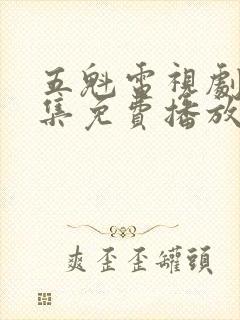 五魁電視劇
集免費播放
爽歪歪罐頭